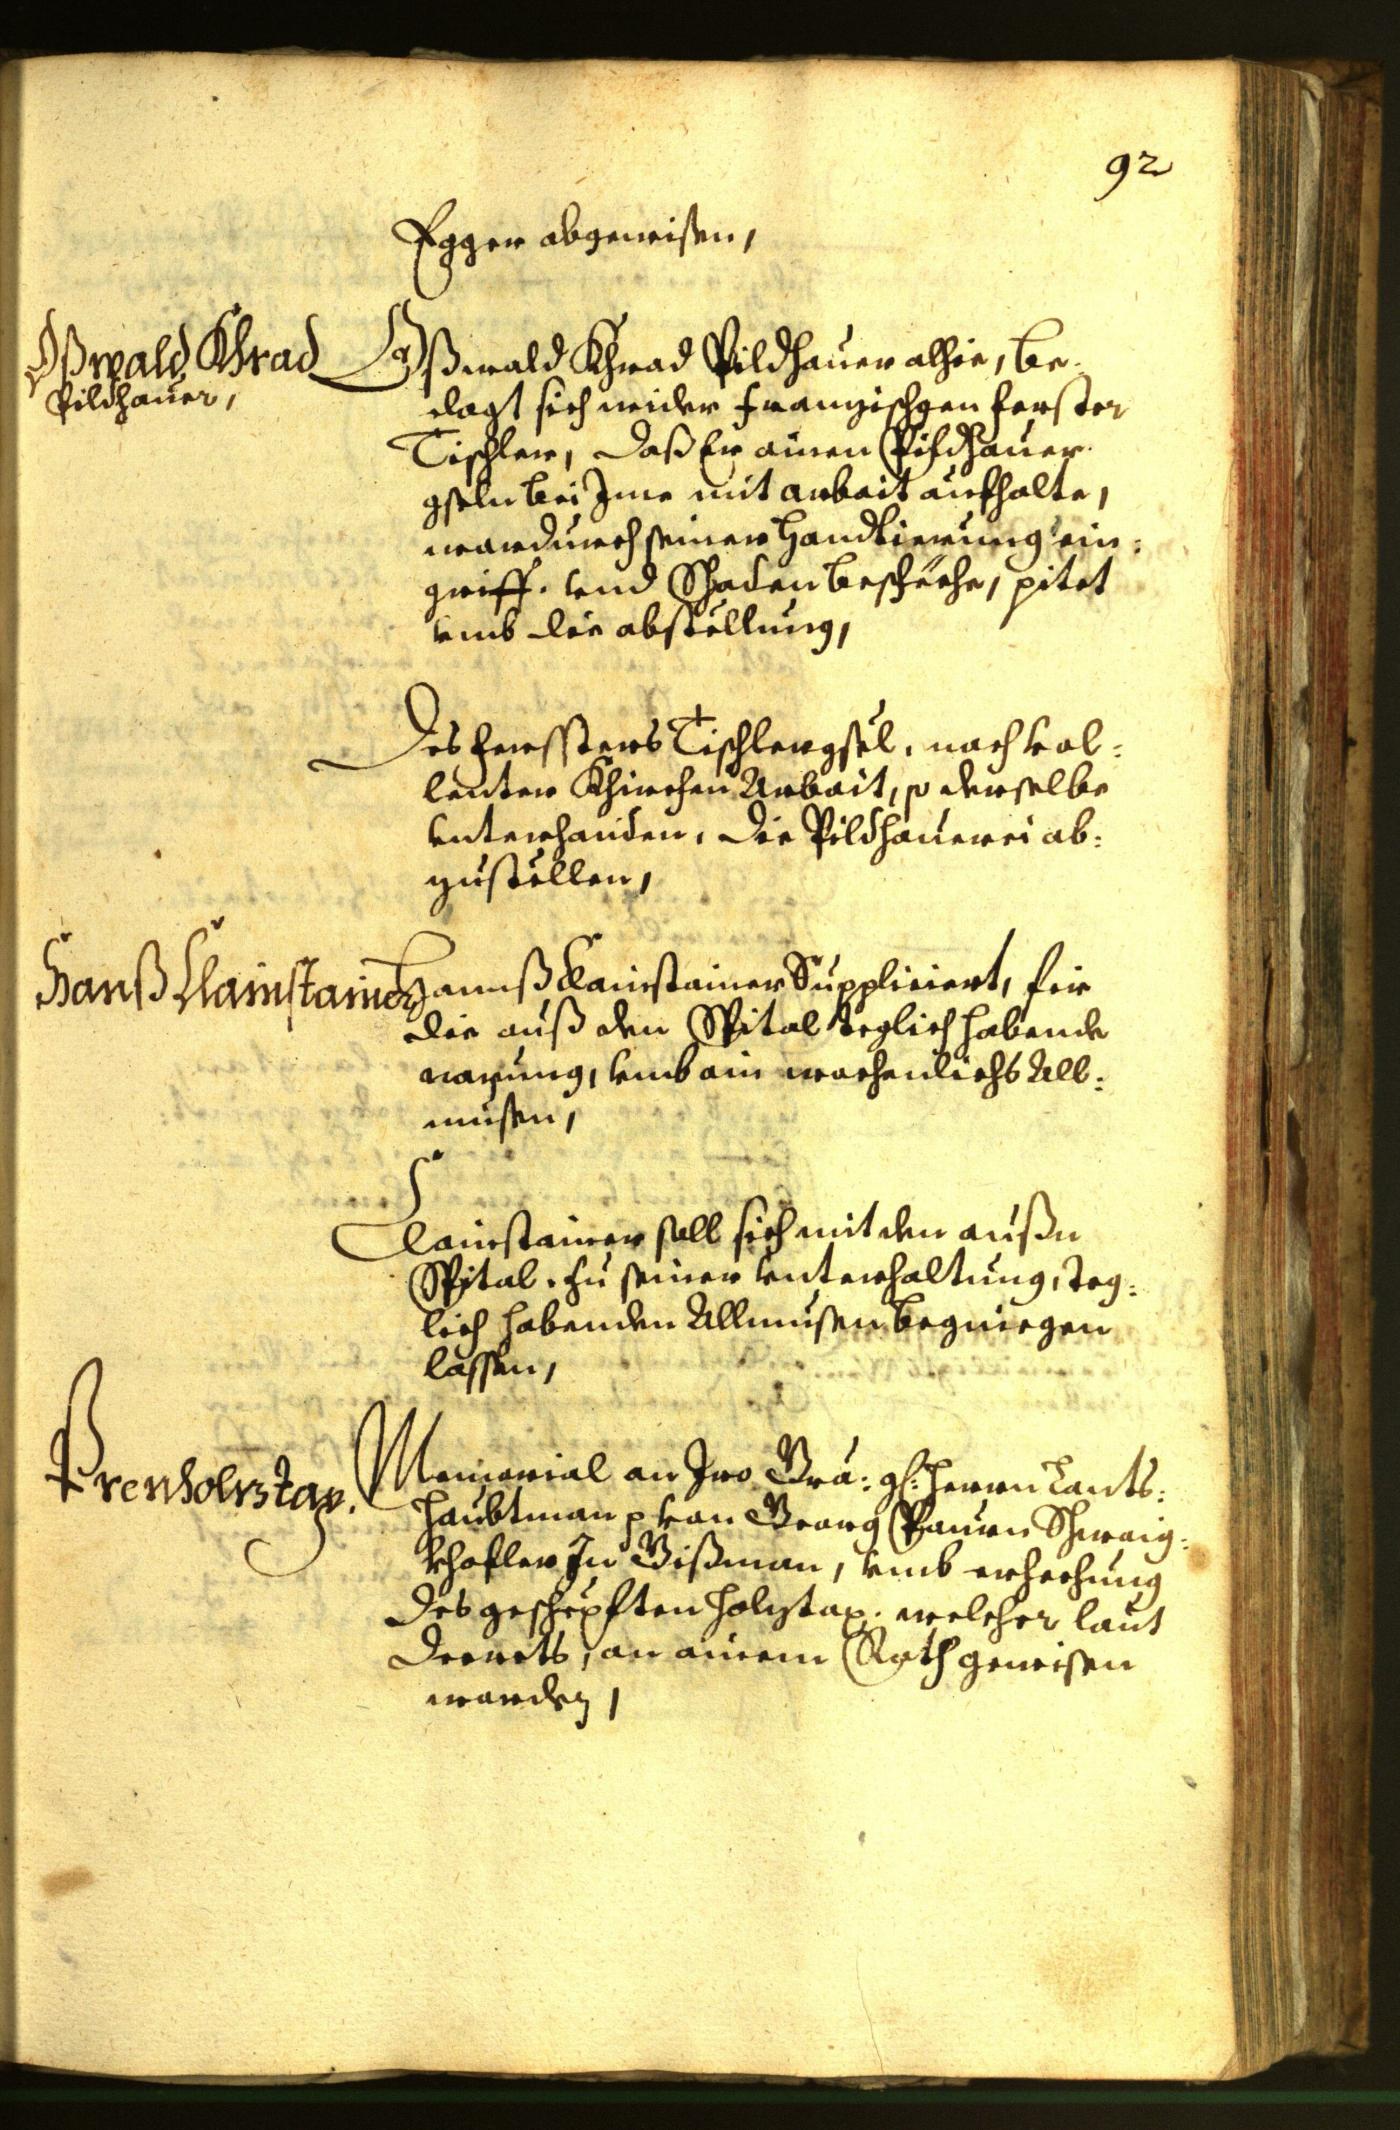 92
Egger abgewisen,
Oßwald Khrad
Pildhauer,
Oßwald Khrad Pildhauer alhie, be¬
clagt sich wider Franzischgen Ferster
Tischler, daß Er ainen Pildhauer
gseln bei Ime mit arbait aufhalte,
wardurch seiner Handtierung ein¬
griff. vnd Schaden beschehe, pitet
vmb die abstellung,
Des Fersters Tischlergsel, nach vol¬
lenter Khirchen Arbait, so derselbe
vnterhanden, die Pildhauerei ab¬
zustellen,
Hanß Clainstainer
Hannß Clainstainer Suppliciert, fir
die auß den Spital teglich habende
narung, vmb ain wochenlichs All¬
musen,
Clainstainer soll sich mit den außn
Spital, zu seiner vnterhaltung, teg¬
lich habenden Allmusen begniegen
lassen,
Prenholztax.
Memorial an Iro Gna: Hl: Herrn Lants¬
haubtman p von Georg Paurn Schwaig¬
khofler In Wißman, vmb erhechung
des geschepften holztax. welcher laut
Decrets, an ainem Rath gewisen
worden,